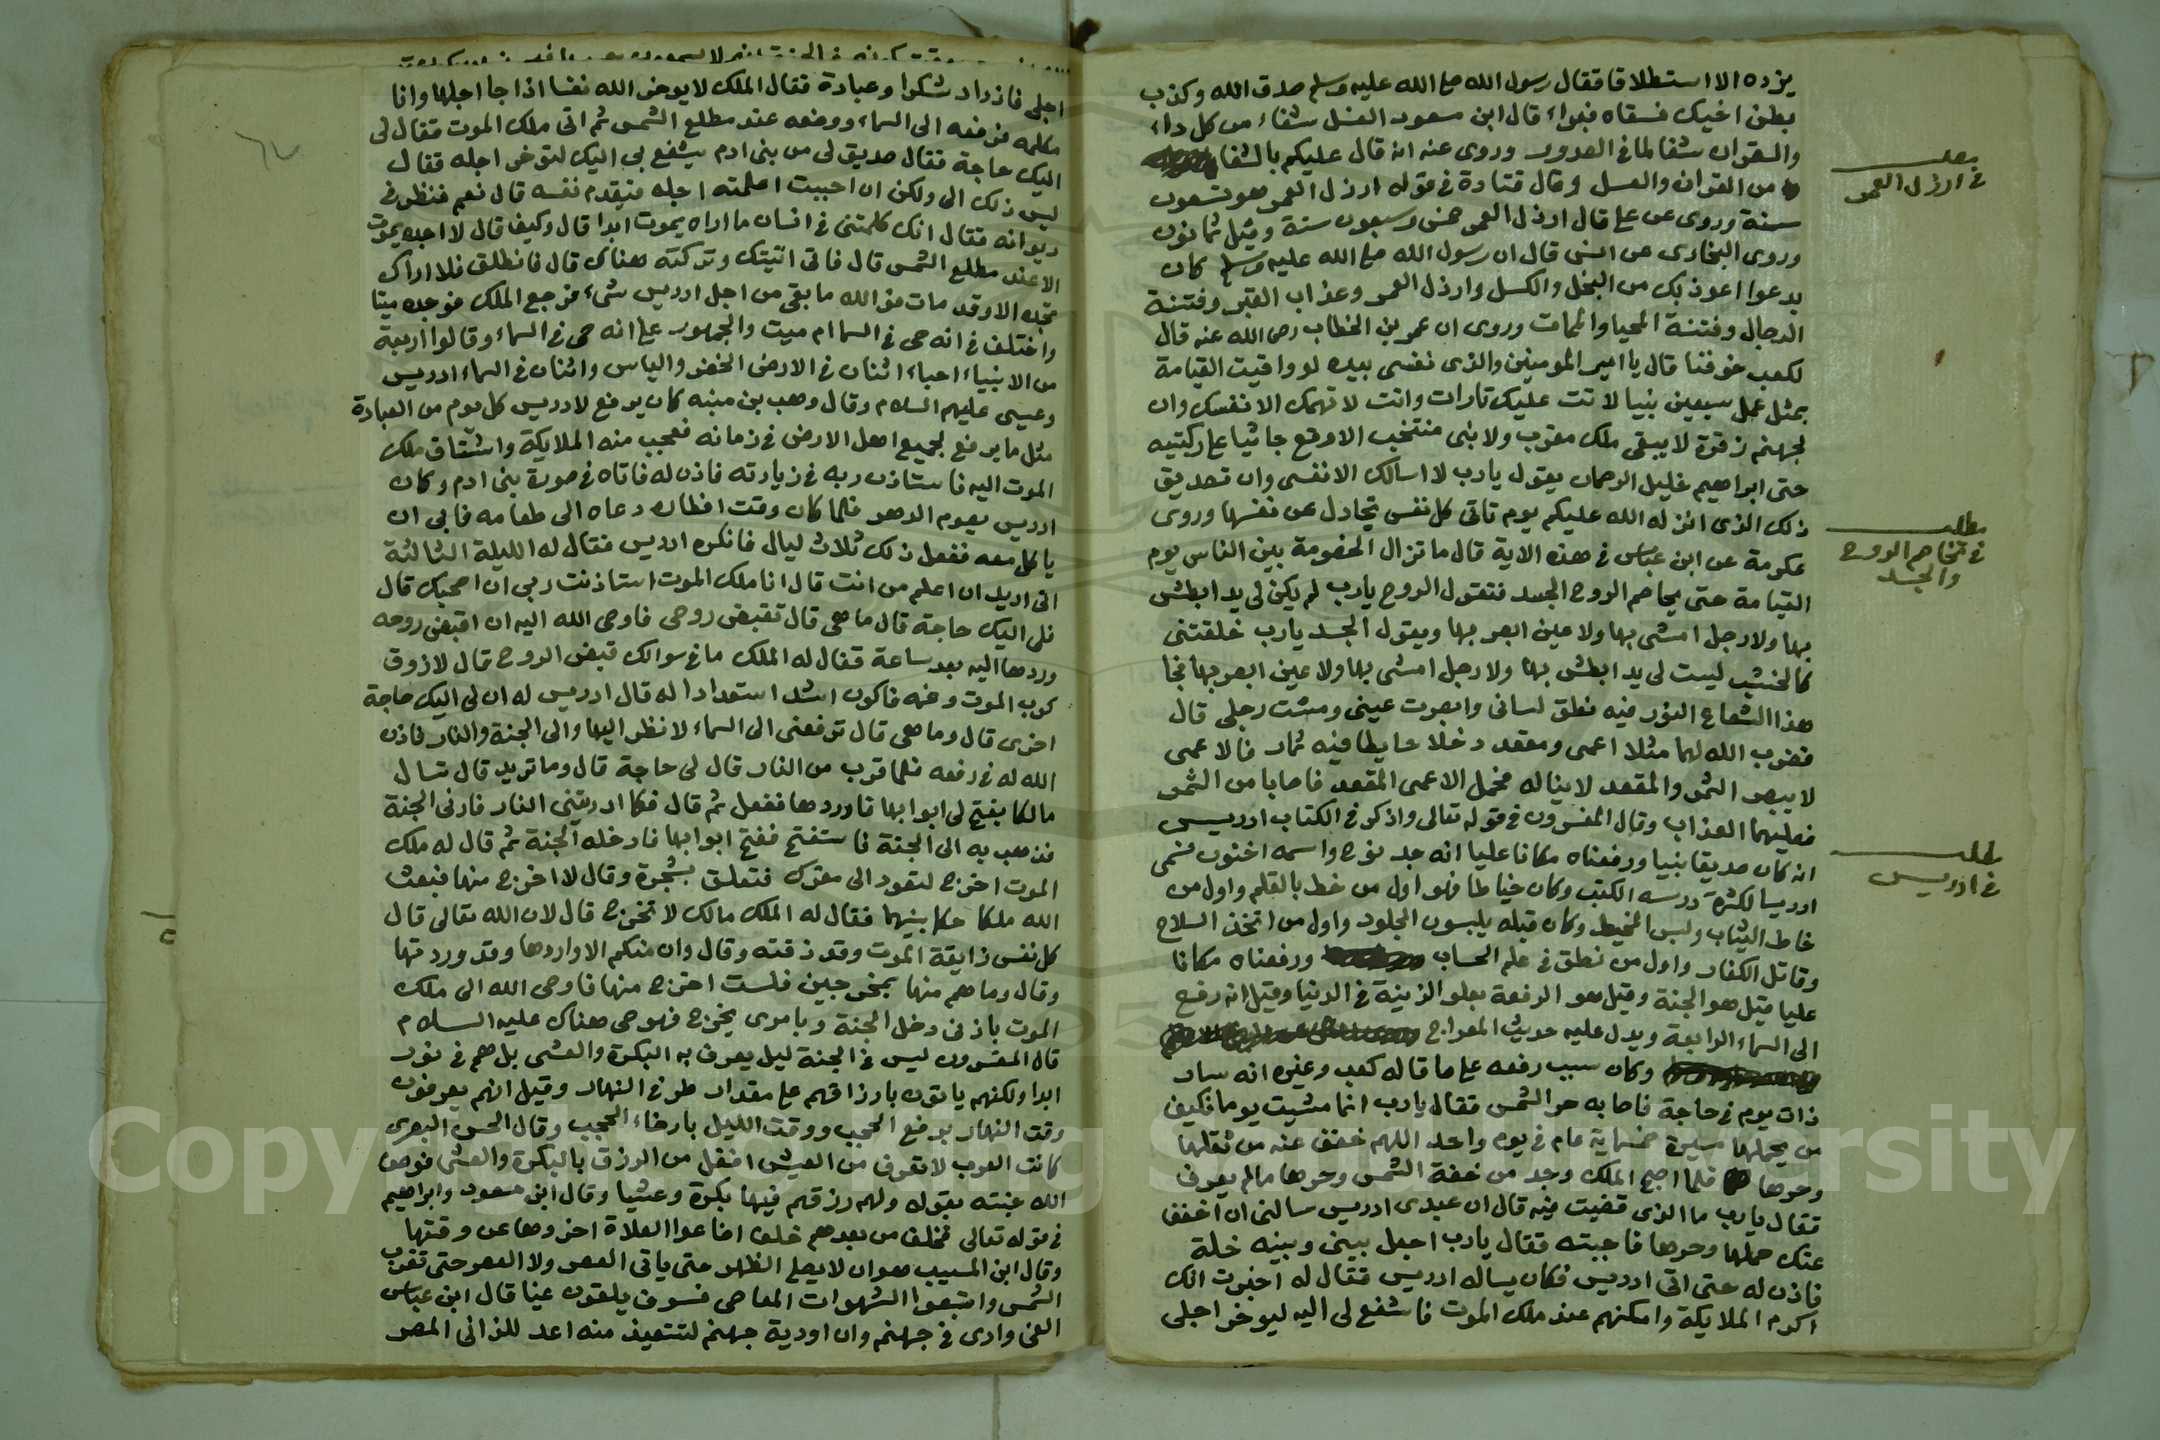 يزده الا استطلاقا فقال رسول الله صلع الله عليه وسلم صدق الله وكذب
بطن اخيك فسقاه فبراء قال ابن مسعود العسل شفاء من كل داء
والقران شفا لما في الصدور وروى عنه انه قال عليكم بالشفا
من القران والعسل وقال قتادة في قوله ارذل العمر هو تسعون
سنة وروى عن علي قال ارذل العمر خمس وسبعون سنة وقيل ثمانون
وروى البخارى عن انس قال ان رسول الله صلع الله عليه وسلم كان
يدعوا اعوذ بك من البخل والكسل وارذل العمر وعذاب القبر وفتنة
الدجال وفتنة المحيا والممات وروى ان عمر بن الخطاب رضى الله عنه قال
لكعب خوفنا قال يا امير المومنين والذى نفسى بيده لو وافيت القيامة
بمثل عمل سبعين نبيا لاتت عليك تارات وانت لا تهمك الا نفسك وان
لجهنم زفرة لا يبقى ملك مقرب ولا بنى منتخب الا وقع جاثيا على ركبتيه
حتى ابراهيم خليل الرحمان يقول يارب لا اسالك الا نفسى وان تصديق
ذلك الذى انزله الله عليكم يوم تاتى كل نفس تجادل عن نفسها وروى
عكرمة عن ابن عباس في هذه الاية قال ما تزال الخصومة بين الناس يوم
القيامة حتى يخاصم الروح الجسد فتقول الروح يارب لم يكن لى يد ابطش
بها ولا رجل امشى بها ولا عين ابصر بها ويقول الجسد يارب خلقتنى
كالخشب ليست لى يد ابطش بها ولا رجل امشى بها ولا عين ابصر بها فجا
هذا الشعاع النور فيه نطق لسانى وابصرت عينى ومشت رجلى قال
فضرب الله لهما مثلا اعمى ومقعد دخلا حايطا فيه ثمار فالاعمى
لا يبصر الثمر والمقعد لا يناله فحمل الاعمى المقعد فاصابا من الثمر
فعليهما العذاب وقال المفسرون في قوله تعالى واذكر في الكتاب ادريس
انه كان صديقا نبيا ورفعناه مكانا عليا انه جد نوح واسمه اخنوخ فسمى
ادريسا لكثرة درسه الكتب وكان خياطا فهو اول من خط بالقلم واول من
خاط الثياب ولبس المخيط وكان قبله يلبسون الجلود واول من اتخذ السلاح
وقاتل الكفار واول من نطق في علم الحساب ورفعناه مكانا
عليا قيل هو الجنة وقيل هو الرفعة بعلو الزينة في الدنيا وقيل انه رفع
الى السماء الرابعة ويدل عليه حديث المعراج
وكان سبب رفعه على ما قاله كعب وغيره انه سار
ذات يوم في حاجة فاصابه حر الشمس فقال يارب انما مشيت يوما فكيف
من يحملها مسيرة خمسماية عام في يوم واحد اللهم خفف عنه من ثقلها
وحرها فلما اصبح الملك وجد من خفة الشمس وحرها مالم يعرف
فقال يارب ما الذى قضيت فيه قال ان عبدى ادريس سالنى ان اخفف
عنك حملها وحرها فاجبته فقال يارب اجعل بينى وبينه خلة
فاذن له حتى اتى ادريس فكان يساله ادريس فقال له اخبرت انك
اكرم الملايكة وامكنهم عند ملك الموت فاشفع لى اليه ليوخر اجلى
مطلب
في ارذل العمر
مطلب
في تخاصم الروح
والجسد
مطلب
في ادريس
اجلى فازداد شكرا وعبادة فقال الملك لا يوخر الله نفسا اذا جا اجلها وانا
مكلمه فرفعه الى السماء ووضعه عند مطلع الشمس ثم اتى ملك الموت فقال لى
اليك حاجة فقال صديق لى من بنى ادم يشفع بى اليك لتوخر اجله فقال
ليس ذلك الى ولكن ان احببت اعلمته اجله فيقدم نفسه قال نعم فنظر في
ديوانه فقال انك كلمتنى في انسان ما اراه يموت ابدا قال وكيف قال لا اجده يموت
الا عند مطلع الشمس قال فانى اتيتك وتركته هناك قال فانطلق فلا اراك
تجده الا وقد مات فوالله ما بقى من اجل ادريس شىء فرجع الملك فوجده ميتا
واختلف في انه حى في السما ام ميت والجمهور على انه حى في السماء وقالوا اربعة
من الانبياء احياء اثنان في الارض الخضر والياس واثنان في السماء ادريس
وعيسى عليهم السلام وقال وهب بن منبه كان يرفع لادريس كل يوم من العبادة
مثل ما يرفع لجميع اهل الارض في زمانه فعجب منه الملايكة واشتاق ملك
الموت اليه فاستاذن ربه في زيارته فاذن له فاتاه في صورة بنى ادم وكان
ادريس يصوم الدهر فلما كان وقت افطاره دعاه الى طعامه فابى ان
ياكل معه ففعل ذلك ثلاث ليال فانكره ادريس فقال له الليلة الثالثة
انى اريد ان اعلم من انت قال انا ملك الموت استاذنت ربى ان اصحبك قال
فلى اليك حاجة قال ما هى قال تقبض روحى فاوحى الله اليه ان اقبض روحه
وردها اليه بعد ساعة فقال له الملك ما في سوالك قبض الروح قال لاذوق
كرب الموت وغمه فاكون اشد استعدادا له قال ادريس له ان لى اليك حاجة
اخرى قال وما هى قال ترفعنى الى السماء لانظر اليها والى الجنة والنار فاذن
الله له في رفعه فلما قرب من النار قال لى حاجة قال وما تريد قال تسال
مالكا يفتح لى ابوابها فاوردها ففعل ثم قال فكما اريتنى النار فارنى الجنة
فذهب به الى الجنة فاستفتح ففتح ابوابها فادخله الجنة ثم قال له ملك
الموت اخرج لتعود الى مقرك فتعلق بشجرة وقال لا اخرج منها فبعث
الله ملكا حكما بينهما فقال له الملك مالك لا تخرج قال لان الله تعالى قال
كل نفس ذايقة الموت وقد ذقته وقال وان منكم الا واردها وقد وردتها
وقال وما هم منها بمخرجين فلست اخرج منها فاوحى الله الى ملك
الموت باذنى دخل الجنة وبامرى يخرج فهو حى هناك عليه السلام
قال المفسرون ليس في الجنة ليل يعرف به البكرة والعشى بل هم في نور
ابدا ولكنهم ياتون بارزاقهم على مقدار طرفي النهار وقيل انهم يعرفون
وقت النهار برفع الحجب ووقت الليل بارخاء الحجب وقال الحسن البصرى
كانت العرب لا تعرف من العيش افضل من الرزق بالبكرة والعشى فوصف
الله جنته بقوله ولهم رزقهم فيها بكرة وعشيا وقال ابن مسعود وابراهيم
في قوله تعالى فخلف من بعدهم خلف اضاعوا الصلاة اخروها عن وقتها
وقال ابن المسيب هو ان لا يصلى الظهر حتى ياتى العصر ولا العصر حتى تغرب
الشمس واتبعوا الشهوات المعاصى فسوف يلقون غيا قال ابن عباس
الغى وادى في جهنم وان اودية جهنم لتستعيذ منه اعد للزانى المصر
Copyright © King Saud University